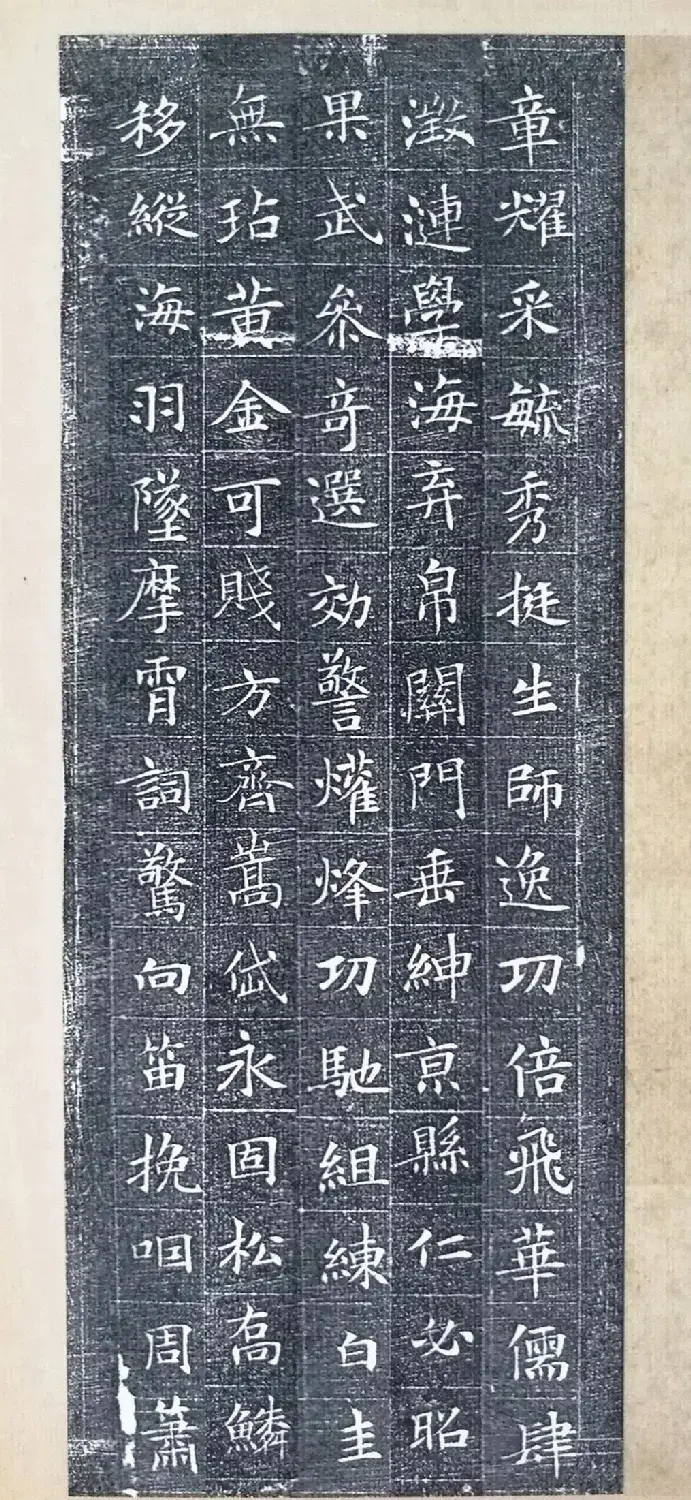 章耀采毓秀挺生師逸功倍飛華儒肆
澂漣學海弃帛關門垂紳京縣仁必昭
果武叅奇選効警爟烽功馳組練白圭
無玷黃金可賤方齊嵩岱永固松喬鱗
移縱海羽墜摩霄詞驚向笛挽咽周簫